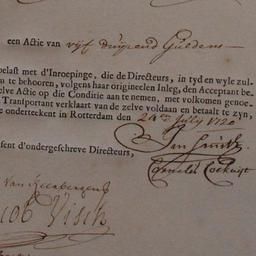 een Actie van vijf duijzend Guldens
belast met d'Inroepinge, die de Directeurs, in tyd en wyle zul-
n te behooren, volgens haar origineelen Inleg, den Acceptant be
elve Actie op die Conditie aan te nemen, met volkomen genoe-
Transportant verklaart van de zelve voldaan en betaalt te zyn,
e onderteekent in Rotterdam den 24en July 1720
Jan
sent d'ondergeschreve Directeurs,
Cornelis
Van
Jacob Visch